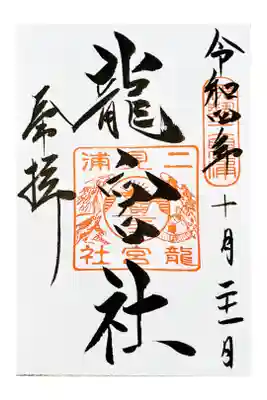 令和四年十月二十一日
龍宮社
奉拝
二見浦
龍宮社